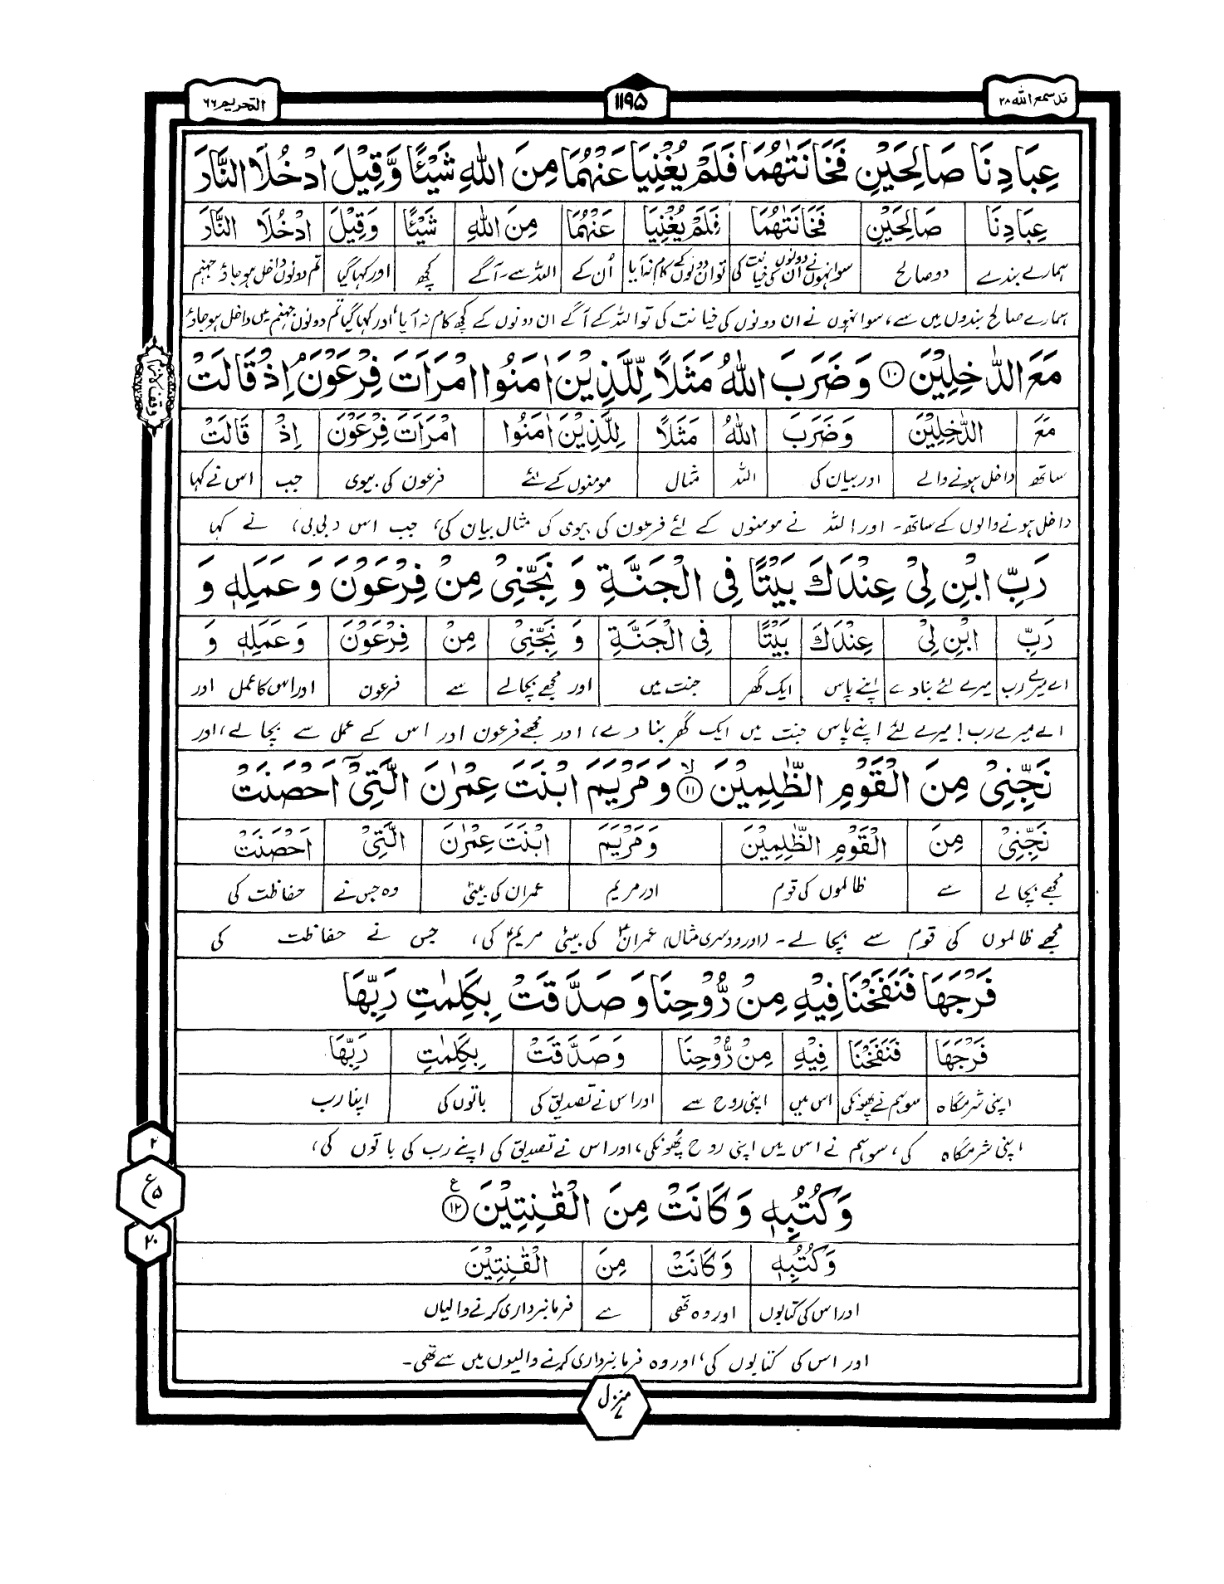 قد سمع الله ۲۸
۱۱۹۵
التحريم ۶۶
عِبَادِنَا صَالِحَيْنِ فَخَانَتٰهُمَا فَلَمْ يُغْنِيَا عَنْهُمَا مِنَ اللّٰهِ شَيْـًٔا وَّقِيْلَ ادْخُلَا النَّارَ
عِبَادِنَا صَالِحَيْنِ فَخَانَتٰهُمَا فَلَمْ يُغْنِيَا عَنْهُمَا مِنَ اللّٰهِ شَيْـًٔا وَقِيْلَ ادْخُلَا النَّارَ
ہمارے بندے دو صالح سو انہوں نے ان دونوں کی خیانت کی تو ان دونوں کے کام نہ آیا اُن کے اللہ سے ۔ آگے کچھ اور کہا گیا تم دونوں داخل ہو جاؤ جہنم
ہمارے صالح بندوں میں سے، سو انہوں نے ان دونوں کی خیانت کی تو اللہ کے آگے ان دونوں کے کچھ کام نہ آیا، اور کہا گیا تم دونوں جہنم میں داخل ہو جاؤ
مَعَ الدّٰخِلِيْنَ ۝۱۰ وَضَرَبَ اللّٰهُ مَثَلًا لِّلَّذِيْنَ اٰمَنُوا امْرَاَتَ فِرْعَوْنَ ۘ اِذْ قَالَتْ
مَعَ الدّٰخِلِيْنَ وَضَرَبَ اللّٰهُ مَثَلًا لِلَّذِيْنَ اٰمَنُوا امْرَاَتَ فِرْعَوْنَ اِذْ قَالَتْ
ساتھ داخل ہونے والے اور بیان کی اللہ مثال مومنوں کے لئے فرعون کی بیوی جب اس نے کہا
داخل ہونے والوں کے ساتھ۔ اور اللہ نے مومنوں کے لئے فرعون کی بیوی کی مثال بیان کی، جب اس (بی بی) نے کہا
رَبِّ ابْنِ لِيْ عِنْدَكَ بَيْتًا فِي الْجَنَّةِ وَ نَجِّنِيْ مِنْ فِرْعَوْنَ وَ عَمَلِهٖ وَ
رَبِّ ابْنِ لِيْ عِنْدَكَ بَيْتًا فِي الْجَنَّةِ وَ نَجِّنِيْ مِنْ فِرْعَوْنَ وَ عَمَلِهٖ وَ
اے میرے رب میرے لئے بنا دے اپنے پاس ایک گھر جنت میں اور مجھے بچا لے سے فرعون اور اس کا عمل اور
اے میرے رب! میرے لئے اپنے پاس جنت میں ایک گھر بنا دے، اور مجھے فرعون اور اس کے عمل سے بچا لے، اور
نَجِّنِيْ مِنَ الْقَوْمِ الظّٰلِمِيْنَ ۝۱۱ۙ وَ مَرْيَمَ ابْنَتَ عِمْرٰنَ الَّتِيْٓ اَحْصَنَتْ
نَجِّنِيْ مِنَ الْقَوْمِ الظّٰلِمِيْنَ وَمَرْيَمَ ابْنَتَ عِمْرٰنَ الَّتِيْٓ اَحْصَنَتْ
مجھے بچا لے سے ظالموں کی قوم اور مریم عمران کی بیٹی وہ جس نے حفاظت کی
مجھے ظالموں کی قوم سے بچا لے۔ (اور دوسری مثال) عمران کی بیٹی مریم کی، جس نے حفاظت کی
فَرْجَهَا فَنَفَخْنَا فِيْهِ مِنْ رُّوْحِنَا وَ صَدَّقَتْ بِكَلِمٰتِ رَبِّهَا
فَرْجَهَا فَنَفَخْنَا فِيْهِ مِنْ رُّوْحِنَا وَ صَدَّقَتْ بِكَلِمٰتِ رَبِّهَا
اپنی شرمگاہ سو ہم نے پھونکی اس میں اپنی روح سے اور اس نے تصدیق کی باتوں کی اپنا رب
اپنی شرمگاہ کی، سو ہم نے اس میں اپنی روح پھونکی، اور اس نے تصدیق کی اپنے رب کی باتوں کی،
وَكُتُبِهٖ وَ كَانَتْ مِنَ الْقٰنِتِيْنَ ۝۱۲ع
وَكُتُبِهٖ وَ كَانَتْ مِنَ الْقٰنِتِيْنَ
اور اس کی کتابوں اور وہ تھی سے فرمانبرداری کرنے والیاں
اور اس کی کتابوں کی، اور وہ فرمانبرداری کرنے والیوں میں سے تھی۔
۲
ع ۵
۲۰
منزل ۷